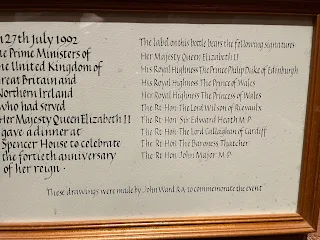 n 27th July 1992
he Prime Ministers of
he United Kingdom of
reat Britain and
Northern Ireland
who had served
Her Majesty Queen Elizabeth II
gave a dinner at
Spencer House to celebrate
the fortieth anniversary
of her reign.
The label on this bottle bears the following signatures
Her Majesty Queen Elizabeth II
His Royal Highness The Prince Philip Duke of Edinburgh
His Royal Highness The Prince of Wales
Her Royal Highness The Princess of Wales
The Rt· Hon· The Lord Wilson of Rievaulx
The Rt· Hon· Sir Edward Heath M·P·
The Rt· Hon· The Lord Callaghan of Cardiff
The Rt· Hon· The Baroness Thatcher
The Rt· Hon· John Major M·P·
These drawings were made by John Ward R·A· to commemorate the event